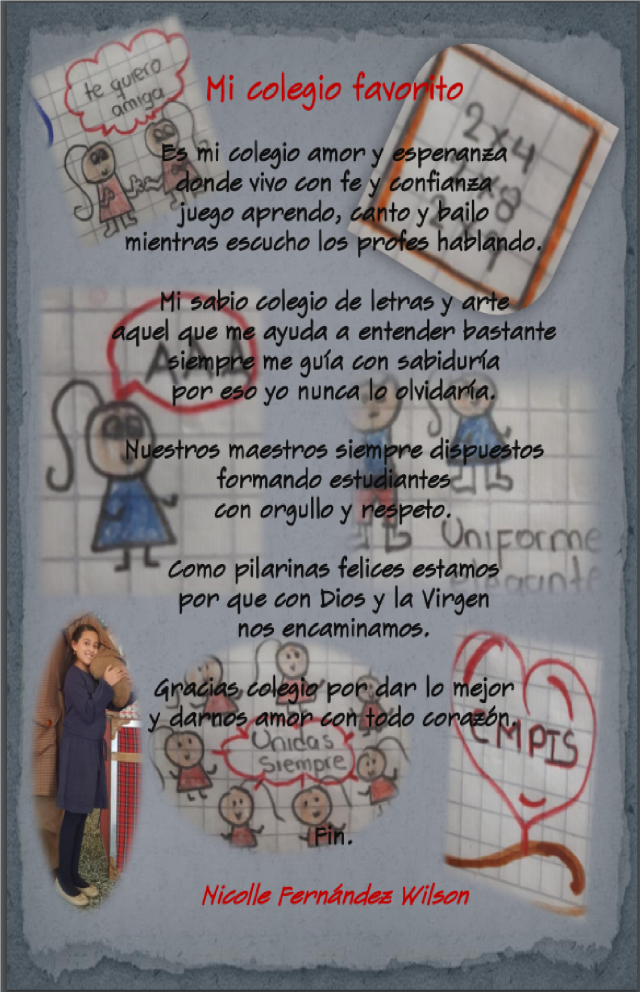 te quiero
amiga
Mi colegio favorito
2x4
Es mi colegio amor y esperanza
donde vivo con fe y confianza
juego aprendo, canto y bailo
mientras escucho los profes hablando.
Mi sabio colegio de letras y arte
aquel que me ayuda a entender bastante
siempre me guía con sabiduría
por eso yo nunca lo olvidaría.
Nuestros maestros siempre dispuestos
formando estudiantes
con orgullo y respeto.
Uniforme
elegante
Como pilarinas felices estamos
por que con Dios y la Virgen
nos encaminamos.
Gracias colegio por dar lo mejor
y darnos amor con todo corazón.
Unidas
Siempre
EMPIS
Fin.
Nicolle Fernández Wilson